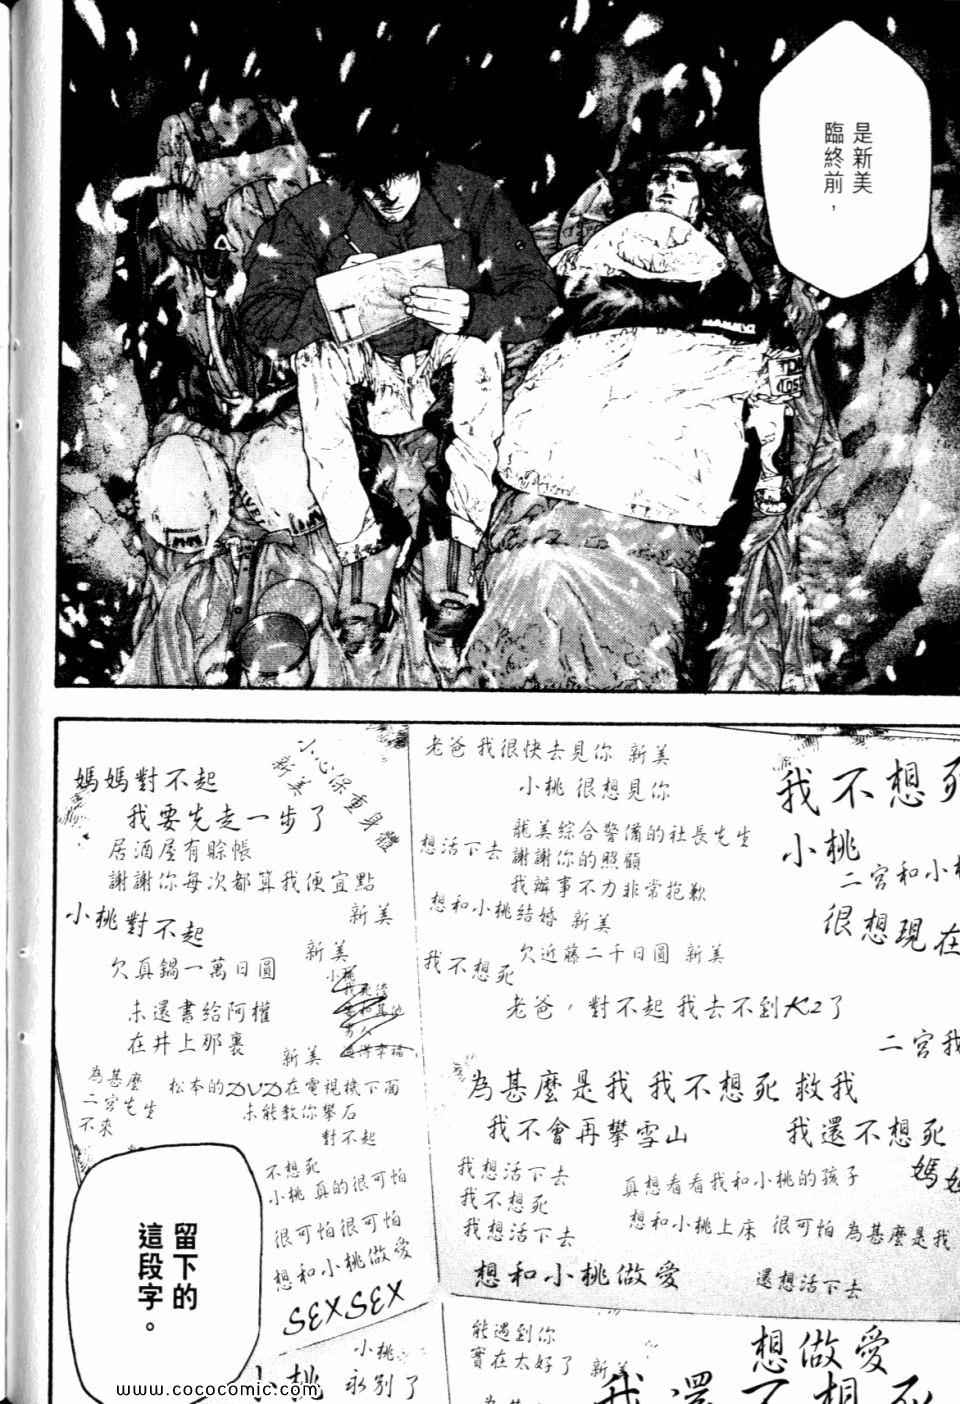 是新美
臨終前，
小心保重身體
新美
媽媽對不起
我要先走一步了
居酒屋有賒帳
謝謝你每次都算我便宜點
新美
小桃對不起
新美
欠真鍋一萬日圓
未還書給阿權
在井上那裏
新美
為甚麼
二宮先生
不來
松本的DVD在電視機下面
未能教你攀石
對不起
不想死
小桃 真的很可怕
很可怕很可怕
想和小桃做愛
SEXSEX
小桃
永別了
小桃
老爸 我很快去見你 新美
小桃 很想見你
想活下去
龍美綜合警備的社長先生
謝謝你的照顧
我辦事不力非常抱歉
想和小桃結婚 新美
我不想死
欠近藤二千日圓 新美
老爸，對不起 我去不到K2了
為甚麼是我 我不想死 救我
我不會再攀雪山
我還不想死
我想活下去
我不想死
我想活下去
真想看看我和小桃的孩子
想和小桃上床 很可怕 為甚麼是我
想和小桃做愛
還想活下去
我不想死
小桃
二宮和小桃
很想現在
二宮我
媽媽
能遇到你
實在太好了 新美
想做愛
我還不想死
留下的
這段字。
www.cococomic.com